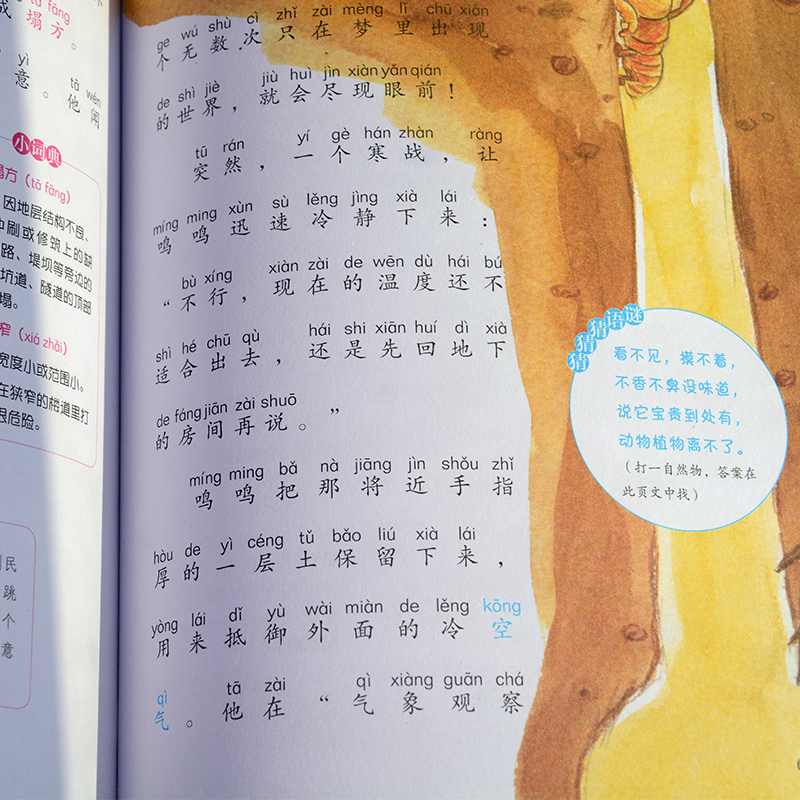 tā fāng
成塌方。
yì tā wén
意。他闻
小词典
塌方（tā fàng）
因地层结构不良、
冲刷或修筑上的缺
路、堤坝等旁边的
坑道、隧道的顶部
塌。
窄（xiá zhǎi）
宽度小或范围小。
在狭窄的楼道里打
很危险。
民
跳
个
意
ge wú shù cì zhǐ zài mèng lǐ chū xiàn
个无数次只在梦里出现
de shì jiè jiù huì jìn xiàn yǎn qián
的世界，就会尽现眼前！
tū rán yí gè hán zhàn ràng
突然，一个寒战，让
míng ming xùn sù lěng jìng xià lái
鸣鸣迅速冷静下来：
bù xíng xiàn zài de wēn dù hái bú
“不行，现在的温度还不
shì hé chū qù hái shi xiān huí dì xià
适合出去，还是先回地下
de fáng jiān zài shuō
的房间再说。”
míng ming bǎ nà jiāng jìn shǒu zhǐ
鸣鸣把那将近手指
hòu de yì céng tǔ bǎo liú xià lái
厚的一层土保留下来，
yòng lái dǐ yù wài miàn de lěng kōng
用来抵御外面的冷空
qì tā zài qì xiàng guān chá
气。他在“气象观察
猜猜猜语谜
看不见，摸不着，
不香不臭没味道，
说它宝贵到处有，
动物植物离不了。
（打一自然物，答案在
此页文中找）